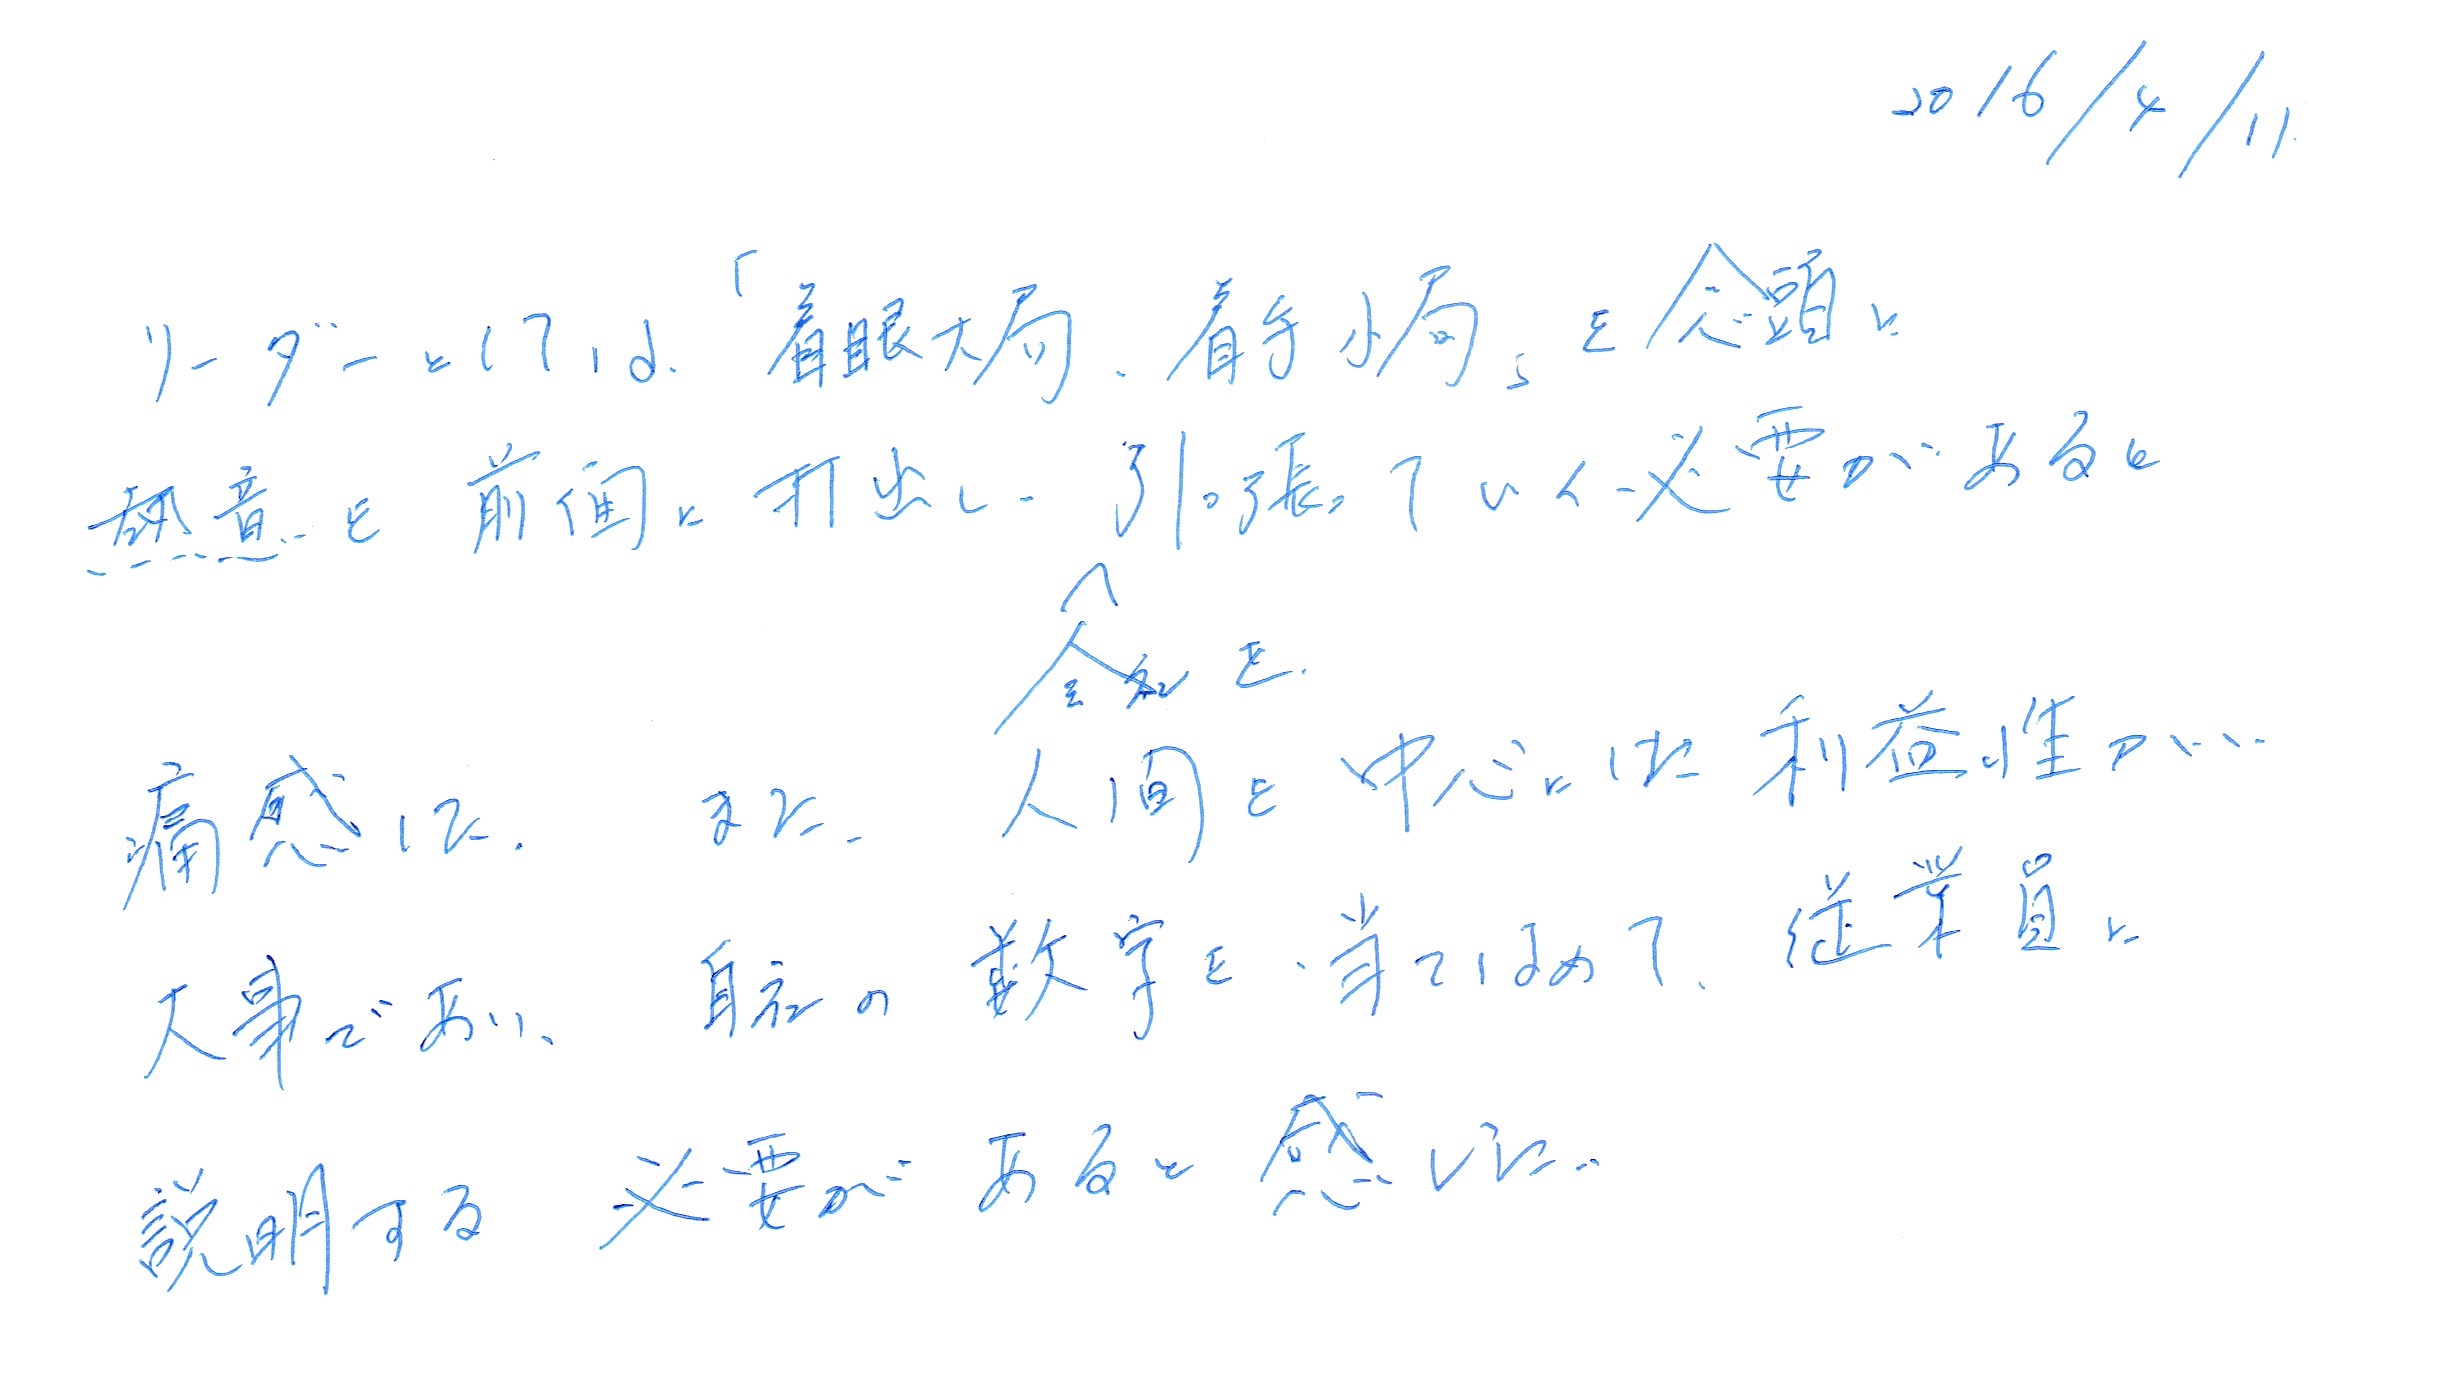 2016/4/11
リーダーとしては、「着眼大局、着手小局」を念頭に
熱意を前面に打出し、引っ張っていく必要があると
会社を
痛感した。また、人間を中心にした利益性が、
大事であり、自社の数字を当てはめて、従業員に
説明する必要があると感じた。